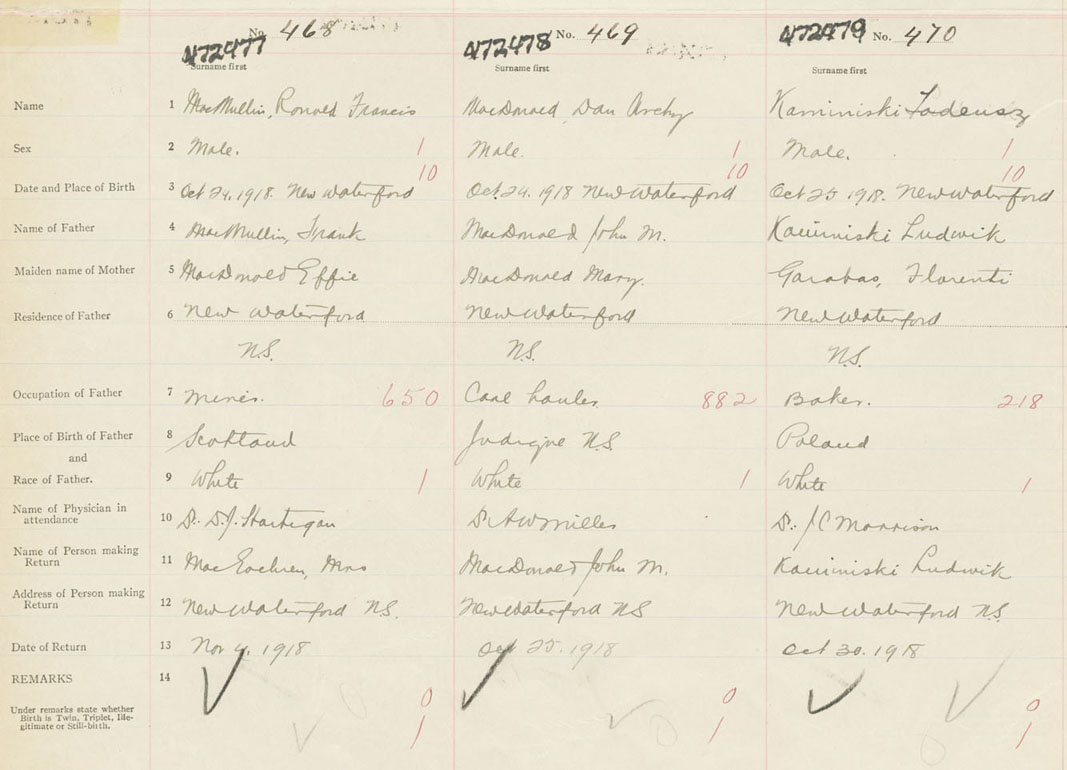 472477 No. 468 472478 No. 469 472479 No. 470
Surname first Surname first Surname first
Name 1 MacMullin, Ronald Francis MacDonald, Dan Archy Kaminiski Tadeusz
Sex 2 Male. 1 Male. 1 Male. 1
10 10 10
Date and Place of Birth 3 Oct 24. 1918. New Waterford Oct. 24. 1918 New Waterford Oct 25 1918. New Waterford
Name of Father 4 MacMullin, Frank MacDonald John M. Kaminiski Ludwik
Maiden name of Mother 5 MacDonald Effie MacDonald Mary. Garabas, Florenti
Residence of Father 6 New Waterford New Waterford New Waterford
N.S. N.S. N.S.
Occupation of Father 7 650 Coal hauler 882 Baker. 218
Place of Birth of Father 8 Scotland N.S. Poland
and
Race of Father. 9 White 1 White 1 White 1
Name of Physician in
attendance 10 D. J. Hartigan A W Miller J C Morrison
Name of Person making
Return 11 MacEachren, Mrs MacDonald John M. Kaminiski Ludwik
Address of Person making
Return 12 New Waterford N.S. New Waterford NS New Waterford N.S.
Date of Return 13 Nov 4, 1918 Oct 25. 1918 Oct 30. 1918
REMARKS 14
Under remarks state whether
Birth is Twin, Triplet, Ille-
gitimate or Still-birth.
0 0 0
1 1 1